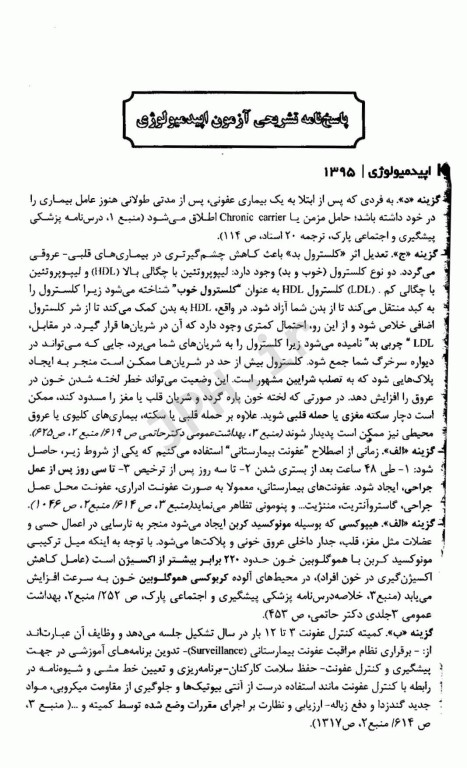 پاسخ‌نامه تشریحی آزمون اپیدمیولوژی
اپیدمیولوژی | ۱۳۹۵
گزینه «د». به فردی که پس از ابتلا به یک بیماری عفونی، پس از مدتی طولانی هنوز عامل بیماری را
در خود داشته باشد؛ حامل مزمن یا Chronic carrier اطلاق می‌شود (منبع ۱، درس‌نامه پزشکی
پیشگیری و اجتماعی پارک، ترجمه ۲۰ اسناد، ص ۱۱۴).
گزینه «ج». تعدیل اثر «کلسترول بد» باعث کاهش چشم‌گیرتری در بیماری‌های قلبی- عروقی
می‌گردد. دو نوع کلسترول (خوب و بد) وجود دارد: لیپوپروتئین با چگالی بالا (HDL) و لیپوپروتئین
با چگالی کم . (LDL) کلسترول HDL به عنوان "کلسترول خوب" شناخته می‌شود زیرا کلسترول را
به کبد منتقل می‌کند تا از بدن شما آزاد شود. در واقع، HDL به بدن کمک می‌کند تا از شر کلسترول
اضافی خلاص شود و از این رو، احتمال کمتری وجود دارد که آن در شریان‌ها قرار گیرد. در مقابل،
LDL " چربی بد" نامیده می‌شود زیرا کلسترول را به شریان‌های شما می‌برد، جایی که می‌تواند در
دیواره سرخرگ شما جمع شود. کلسترول بیش از حد در شریان‌ها ممکن است منجر به ایجاد
پلاک‌هایی شود که به تصلب شرایین مشهور است. این وضعیت می‌تواند خطر لخته شدن خون در
عروق را افزایش دهد. در صورتی که لخته خون پاره گردد و شریان قلب یا مغز را مسدود کند، ممکن
است دچار سکته مغزی یا حمله قلبی شوید. علاوه بر حمله قلبی یا سکته، بیماری‌های کلیوی یا عروق
محیطی نیز ممکن است پدیدار شوند (منبع ۳، بهداشت عمومی دکتر حاتمی ص ۶۱۹/ منبع ۲، ص۶۲۵).
گزینه «الف». زمانی از اصطلاح "عفونت بیمارستانی" استفاده می‌کنیم که یکی از شروط زیر، حاصل
شود: ۱- طی ۴۸ ساعت بعد از بستری شدن ۲- تا سه روز پس از ترخیص ۳- تا سی روز پس از عمل
جراحی، ایجاد شود. عفونت‌های بیمارستانی، معمولا به صورت عفونت ادراری، عفونت محل عمل
جراحی، گاستروآنتریت، مننژیت... و پنومونی تظاهر می‌نماید(منبع ۳، ص ۶۱۴/ منبع۲، ص ۱۰۴۶).
گزینه «الف». هیپوکسی که بوسیله مونوکسید کربن ایجاد می‌شود منجر به نارسایی در اعمال حسی و
عضلات مثل مغز، قلب، جدار داخلی عروق خونی و پلاکت‌ها می‌شود. با توجه به اینکه میل ترکیبی
مونوکسید کربن با هموگلوبین خون حدود ۲۲۰ برابر بیشتر از اکسیژن است (عامل کاهش
اکسیژن‌گیری در خون افراد)، در محیط‌های آلوده کربوکسی هموگلوبین خون به سرعت افزایش
می‌یابد (منبع۳، خلاصه‌درس‌نامه پزشکی پیشگیری و اجتماعی پارک، ص ۲۵۲/ منبع۲، بهداشت
عمومی ۳جلدی دکتر حاتمی، ص ۴۵۳).
گزینه «ب». کمیته کنترل عفونت ۳ تا ۱۲ بار در سال تشکیل جلسه می‌دهد و وظایف آن عبارت‌اند
از: - برقراری نظام مراقبت عفونت بیمارستانی (Surveillance)- تدوین برنامه‌های آموزشی در جهت
پیشگیری و کنترل عفونت- حفظ سلامت کارکنان- برنامه‌ریزی و تعیین خط مشی و شیوه‌نامه در
رابطه با کنترل عفونت مانند استفاده درست از آنتی بیوتیک‌ها و جلوگیری از مقاومت میکروبی، مواد
جدید گندزدا و دفع زباله- ارزیابی و نظارت بر اجرای مقررات وضع شده توسط کمیته و ...( منبع ۳،
ص ۶۱۴/ منبع۲، ص۱۳۱۷).